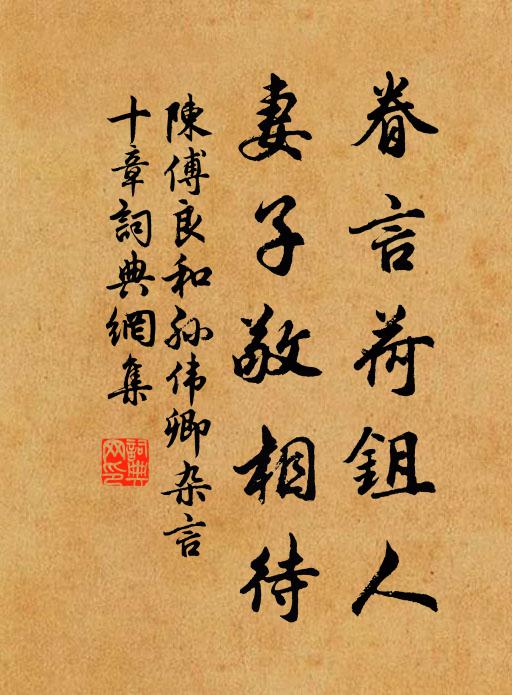 眷言荷鉏人
妻子敬相待
陳傅良和孙伟卿杂言
十章詞典網集
詞典
网印